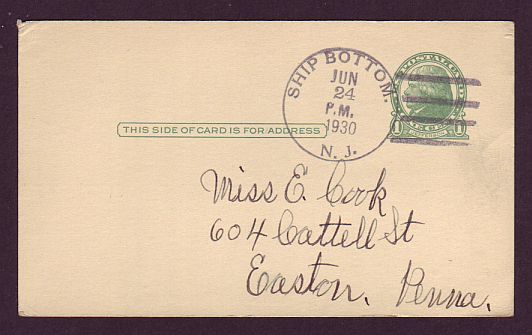 SHIP BOTTOM.
JUN
24
P.M.
1930
N. J.
POSTAL CARD
1 ONE CENT 1
JEFFERSON
THIS SIDE OF CARD IS FOR ADDRESS
Miss E. Cook
604 Cattell St
Easton, Penna.